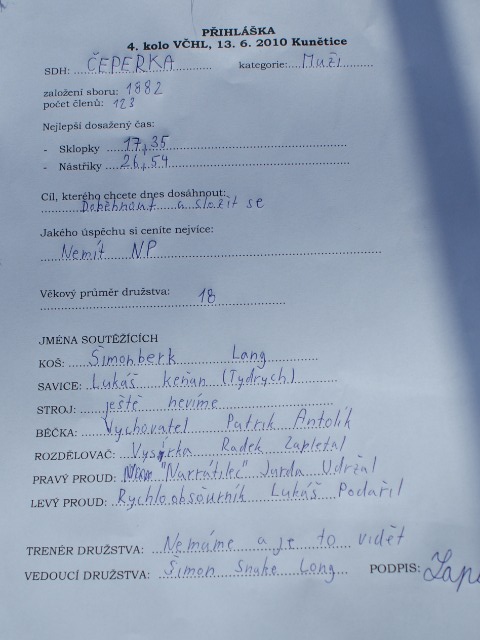 PŘIHLÁŠKA
4. kolo VČHL, 13. 6. 2010 Kunětice
SDH: ČEPERKA kategorie: Muži
založení sboru: 1882
počet členů: 123
Nejlepší dosažený čas:
- Sklopky 17,35
- Nástřiky 26,54
Cíl, kterého chcete dnes dosáhnout:
Doběhnout a složit se
Jakého úspěchu si ceníte nejvíce:
Nemít NP
Věkový průměr družstva: 18
JMÉNA SOUTĚŽÍCÍCH
KOŠ: Šimonberk Lang
SAVICE: Lukáš keňan (Tydrych)
STROJ: ještě nevíme
BÉČKA: Vychovatel Patrik Antolík
ROZDĚLOVAČ: Vysírka Radek Zapletal
PRAVÝ PROUD: "Narrátilec" Jurda Udržal
LEVÝ PROUD: Rychloobšourník Lukáš Podařil
TRENÉR DRUŽSTVA: Nemáme a je to vidět
VEDOUCÍ DRUŽSTVA: Šimon Snake Long PODPIS: